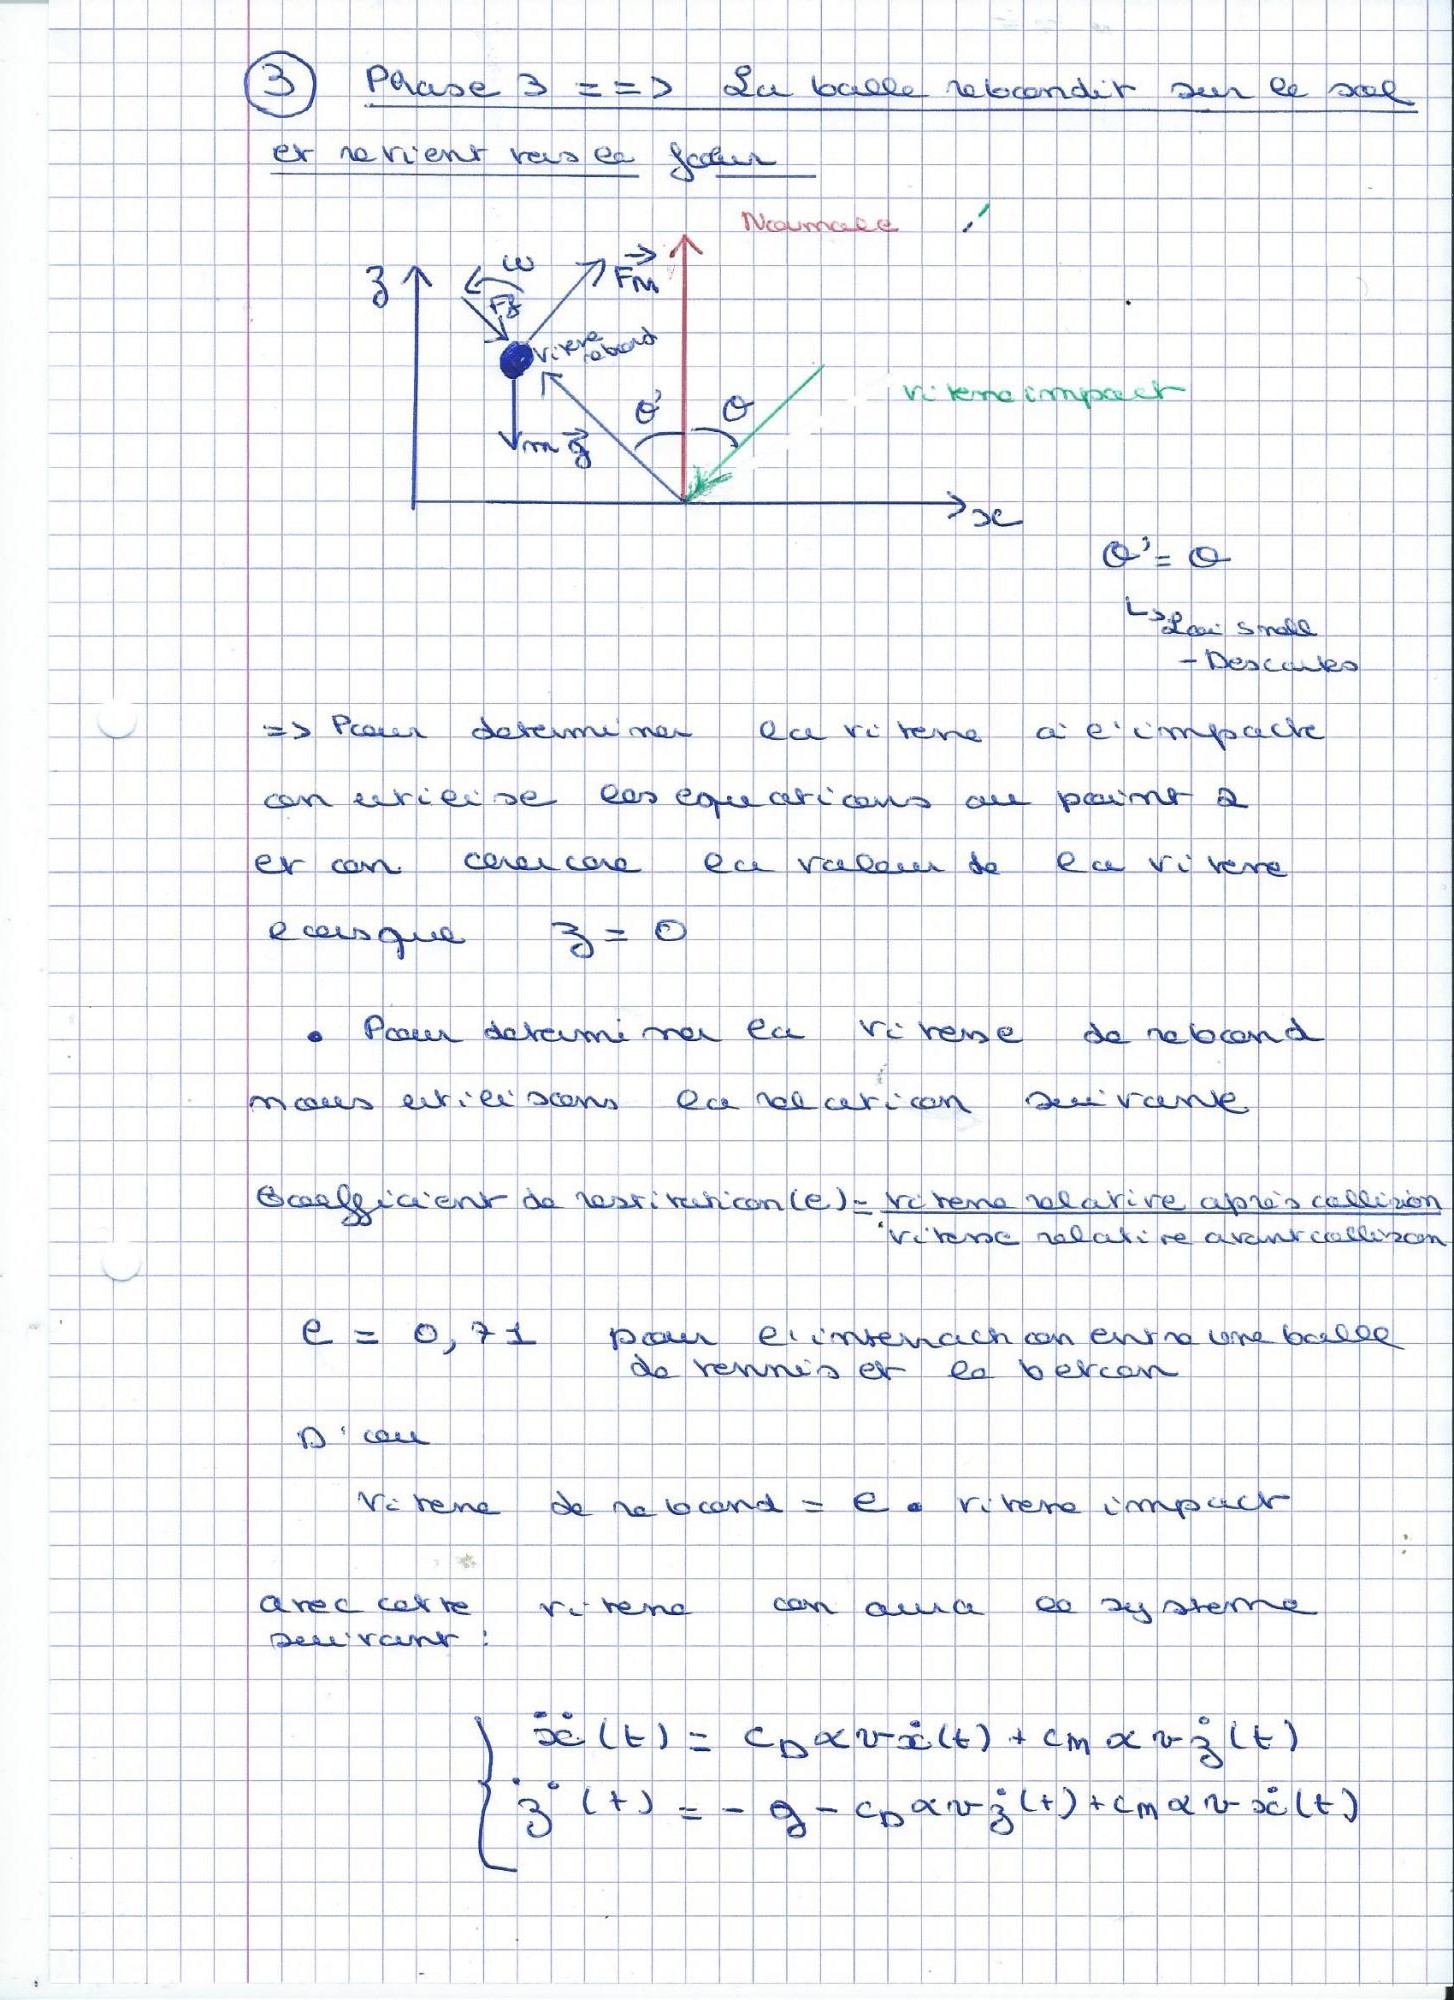 3 Phase 3 ==> La balle rebondit sur le sol
et revient vers le joueur
Normale
z
ω
Ff
FM
vitesse
rebond
θ'
θ
vitesse impact
mg
x
θ' = θ
↳ Loi Snell
- Descartes
=> Pour determiner la vitesse à l'impacte
on utilise les equations au point 2
et on cherche la valeur de la vitesse
lorsque z = 0
• Pour determiner la vitesse de rebond
nous utilisons la relation suivante
coefficient de restitution (e) = vitesse relative après collision
vitesse relative avant collision
e = 0,71 pour l'interaction entre une balle
de tennis et le beton
D'ou
vitesse de rebond = e • vitesse impact
avec cette vitesse on aura le systeme
suivant :
ẍ(t) = CD α v ẋ(t) + CM α v ż(t)
z̈(t) = - g - CD α v ż(t) + CM α v ẋ(t)